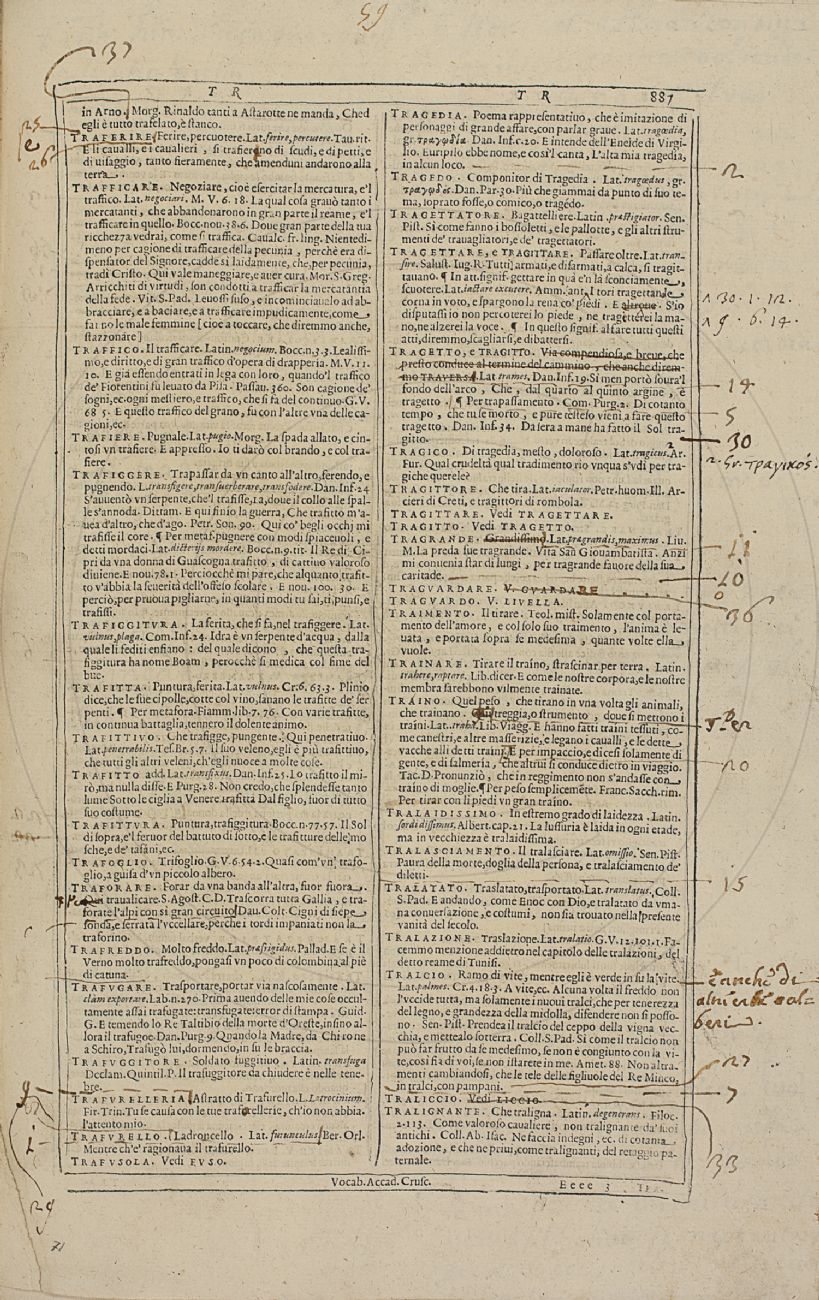 59
37
T R
T R
887
in Arno. Morg. Rinaldo tanti a Astarotte ne manda, Ched
egli è tutto trafelato, è stanco.
TRAFERIRE. Ferire, percuotere. Lat. ferire, percutere. Tau. rit.
E li cavalli, e i caualieri, si trafierono di scudi, e di petti, e
di uisaggio, tanto fieramente, che amenduni andarono alla
terra.
TRAFFICARE. Negoziare, cioè esercitar la mercatura, e'l
traffico. Lat. negociari. M. V. 6. 18. La qual cosa grauò tanto i
mercatanti, che abbandonarono in gran parte il reame, e'l
trafficare in quello. Bocc. nou. 38. 6. Doue gran parte della tua
ricchezza vedrai, come si traffica. Caualc. fr. ling. Nientedi-
meno per cagione di trafficare della pecunia, perchè era di-
spensator del Signore, cadde sì laidamente, che, per pecunia,
tradì Cristo. Qui vale maneggiare, e auer cura. Mor. S. Greg.
Arricchiti di virtudi, son condotti a trafficar la mercatantia
della fede. Vit. S. Pad. Leuossi suso, e incominciaualo ad ab-
bracciare, e a baciare, e a trafficare impudicamente, come
fanno le male femmine [cioè a toccare, che diremmo anche,
stazzonare]
TRAFFICO. Il trafficare. Latin. negocium. Bocc. n. 3. 3. Lealissi-
mo, e diritto, e di gran traffico d'opera di drapperia. M. V. 11.
E già essendo entrati in lega con loro, quando'l traffico
de' Fiorentini fu leuato da Pisa. Passau. 360. Son cagione de'
sogni, ec. ogni mestiero, e traffico, che si fa del continuo. G. V.
68 5. E questo traffico del grano, fu con l'altre vna delle ca-
gioni, ec.
TRAFIERE. Pugnale. Lat. pugio. Morg. La spada allato, e cin-
tosi vn trafiere. E appresso. Io ti darò col brando, e col tra-
fiere.
TRAFIGGERE. Trapassar da vn canto all'altro, ferendo, e
pugnendo. L. transfigere, transuerberare, transfodere. Dan. Inf. 24
S'auuentò vn serpente, che'l trafisse, Là, doue il collo alle spal-
le s'annoda. Dittam. E qui finìo la guerra, Che trafitto m'a-
uea d'altro, che d'ago. Petr. Son. 90. Qui co' begli occhi mi
trafisse il core. ¶ Per metaf. pugnere con modi spiaceuoli, e
detti mordaci. Lat. dicterijs mordere. Bocc. n. 9. tit. Il Re di Ci-
pri da vna donna di Guascogna trafitto, di cattiuo valoroso
diuiene. E nou. 78. 1. Perciocchè mi pare, che alquanto trafit-
to v'abbia la seuerità dell'offeso scolare. E nou. 100. 30. E
perciò, per pruoua pigliarne, in quanti modi tu sai, ti punsi, e
trafissi.
TRAFIGGITVRA. La ferita, che si fa, nel trafiggere. Lat.
vulnus, plaga. Com. Inf. 24. Idra è vn serpente d'acqua, dalla
quale li fediti enfiano: del quale dicono, che questa tra-
figgitura ha nome Boam, perocchè si medica col fime del
bue.
TRAFITTA. Puntura, ferita. Lat. vulnus. Cr. 6. 63. 3. Plinio
dice, che le sue cipolle, cotte col vino, sanano le trafitte de' ser
penti. ¶ Per metafora. Fiamm. lib. 7. 76. Con varie trafitte,
in continua battaglia, tennero il dolente animo.
TRAFITTIVO. Che trafigge, pungente. Qui penetratiuo.
Lat. penetrabilis. Tes. Br. 5. 7. Il suo veleno, egli è più trafittiuo,
che tutti gli altri veleni, ch'egli nuoce a molte cose.
TRAFITTO add. Lat. transfixus. Dan. Inf. 25. Lo trafitto il mi-
rò, ma nulla disse. E Purg. 28. Non credo, che splendesse tanto
lume Sotto le ciglia a Venere trafitta Dal figlio, fuor di tutto
suo costume.
TRAFITTVRA. Puntura, trafiggitura. Bocc. n. 77. 57. Il Sol
di sopra, e'l feruor del battuto di sotto, e le trafitture delle mo
sche, e de' tafani, ec.
TRAFOGLIO. Trifoglio. G. V. 6. 54. 2. Quasi com'vn trafo-
glio, a guisa d'vn piccolo albero.
TRAFORARE. Forar da vna banda all'altra, fuor fuora.
Qui traualicare. S. Agost. C. D. Trascorra tutta Gallia, e tra-
forate l'alpi con sì gran circuito. Dau. Colt. Cigni di siepe
fonda, e serrata l'vccellare, perchè i tordi impaniati non la
traforino.
TRAFREDDO. Molto freddo. Lat. præfrigidus. Pallad. E se è il
Verno molto trafreddo, pongasi vn poco di colombina al piè
di catuna.
TRAFVGARE. Trasportare, portar via nascosamente. Lat.
clàm exportare. Lab. n. 270. Prima auendo delle mie cose occul-
tamente assai trafugate: transfugate: error di stampa. Guid.
G. E temendo lo Re Taltibio della morte d'Oreste, insino al-
lora il trafugoe. Dan. Purg. 9. Quando la Madre, da Chirone
a Schiro, Trafugò lui, dormendo, in su le braccia.
TRAFVGGITORE. Soldato fuggitiuo. Latin. transfuga
Declam. Quintil. P. Il trafuggitore da chiudere è nelle tene-
bre.
TRAFVRELLERIA. Astratto di Trafurello. L. Latrocinium.
Fir. Trin. Tu se causa con le tue trafurellerie, ch'io non abbia
l'attento mio.
TRAFVRELLO. Ladroncello. Lat. furunculus. Ber. Orl.
Mentre ch'e' ragionaua il trafurello.
TRAFVSOLA. Vedi FVSO.
TRAGEDIA. Poema rappresentatiuo, che è imitazione di
personaggi di grande affare, con parlar graue. Lat. tragœdia,
gr. τραγῳδία. Dan. Inf. c. 20. E intende dell'Eneide di Virgi-
lio. Euripilo ebbe nome, e così'l canta, L'alta mia tragedia,
in alcun loco.
TRAGEDO. Componitor di Tragedia. Lat. tragœdus, gr.
τραγῳδός. Dan. Par. 30. Più che giammai da punto di suo te-
ma, soprato fosse, o comico, o tragedo.
TRAGETTATORE. Bagattelliere. Latin. præstigiator. Sen.
Pist. Sì come fanno i bossoletti, e le pallotte, e gli altri stru-
menti de' trauagliatori, e de' tragettatori.
TRAGETTARE, e TRAGITTARE. Passare oltre. Lat. tran-
sire. Salust. Iug. R. Tutti armati, e disarmati, a calca, si tragit-
tauano. ¶ In att. signif. gettare in qua e'n là sconciamente,
scuotere. Lat. iactare excutere. Amm. ant. I tori tragettan le
corna in voto, e spargono la rena co' piedi. E altroue. S'io
disputassi io non percoterei lo piede, ne tragetterei la ma-
no, ne alzerei la voce. ¶ In questo signif. al fare tutti questi
atti, diremmo, scagliarsi, e dibattersi.
TRAGETTO, e TRAGITTO. Via compendiosa, e breue, che
presto conduce al termine del cammino, che anche direm-
mo TRAVERSA. Lat. trames. Dan. Inf. 19. Sì men portò soura'l
fondo dell'arco, Che, dal quarto al quinto argine, è
tragetto. ¶ Per trapassamento. Com. Purg. 2. Di cotanto
tempo, che tu se morto, e pure testeso vieni, a fare questo
tragetto. Dan. Inf. 34. Da sera a mane ha fatto il Sol tra-
gitto.
TRAGICO. Di tragedia, mesto, doloroso. Lat. tragicus. Ar.
Fur. Qual crudeltà qual tradimento rio vnqua s'vdì per tra-
giche querele?
TRAGITTORE. Che tira. Lat. iaculator. Petr. huom. Ill. Ar-
cieri di Creti, e tragittori di rombola.
TRAGITTARE. Vedi TRAGETTARE.
TRAGITTO. Vedi TRAGETTO.
TRAGRANDE. Grandissimo. Lat. prægrandis, maximus. Liu.
M. La preda fue tragrande. Vita San Giouambatista. Anzi
mi conuenia star di lungi, per tragrande fauore della sua
caritade.
TRAGVARDARE. V. GVARDARE
TRAGVARDO. V. LIVELLA.
TRAIMENTO. Il tirare. Teol. mist. Solamente col porta-
mento dell'amore, e col solo suo traimento, l'anima è le-
uata, e portata sopra se medesima, quante volte ella
vuole.
TRAINARE. Tirare il traino, strascinar per terra. Latin.
trahere, raptare. Lib. dicer. E come le nostre corpora, e le nostre
membra sarebbono vilmente trainate.
TRAINO. Quel peso, che tirano in vna volta gli animali,
che trainano. treggia, o strumento, doue si mettono i
traini. Lat. traha. Lib. Viagg. E hanno fatti traini tessuti, co-
me canestri, e altre masserizie, e legano i caualli, e le dette
vacche alli detti traini. E per impaccio, e dicesi solamente di
gente, e di salmeria, che altrui si conduce dietro in viaggio.
Tac. D. Pronunziò, che in reggimento non s'andasse con
traino di moglie. ¶ Per peso semplicemẽte. Franc. Sacch. rim.
Per tirar con li piedi vn gran traino.
TRALAIDISSIMO. In estremo grado di laidezza. Latin.
sordidissimus. Albert. cap. 21. La lussuria è laida in ogni etade,
ma in vecchiezza è tralaidissima.
TRALASCIAMENTO. Il tralasciare. Lat. omissio. Sen. Pist.
Paura della morte, doglia della persona, e tralasciamento de'
diletti.
TRALATATO. Traslatato, trasportato. Lat. translatus. Coll.
S. Pad. E andando, come Enoc con Dio, e tralatato da vma-
na conuersazione, e costumi, non sia trouato nella presente
vanità del secolo.
TRALAZIONE. Traslazione. Lat. tralatio. G. V. 12. 101. 1. Fa-
cemmo menzione addietro nel capitolo delle tralazioni, del
detto reame di Tunisi.
TRALCIO. Ramo di vite, mentre egli è verde in su la vite.
Lat. palmes. Cr. 4. 18. 3. A vite, ec. Alcuna volta il freddo non
l'vccide tutta, ma solamente i nuoui tralci, che per tenerezza
del legno, e grandezza della midolla, difendere non si posso-
no. Sen. Pist. Prendea il tralcio del ceppo della vigna vec-
chia, e mettealo sotterra. Coll. S. Pad. Sì come il tralcio non
può far frutto da se medesimo, se non è congiunto con la vi-
te, così fia di voi, se non istarete in me. Amet. 88. Non altra-
menti cambiandosi, che le tele delle figliuole del Re Mineo,
in tralci, con pampani.
TRALICCIO. Vedi LICCIO.
TRALIGNANTE. Che traligna. Latin. degenerans. Filoc.
2. 113. Come valoroso caualiere, non tralignante da' suoi
antichi. Coll. Ab. Isac. Ne faccia indegni, ec. di cotanta
adozione, e che ne priui, come tralignanti, del retaggio pa-
ternale.
Vocab. Accad. Crusc.
Eeee 3
25
e
26
9
i
29
2
30. 1. 12.
9. 6. 14.
19
5
30
2. Gr. τραγικός.
11
10
36
10
15
E anche di
27
7
33